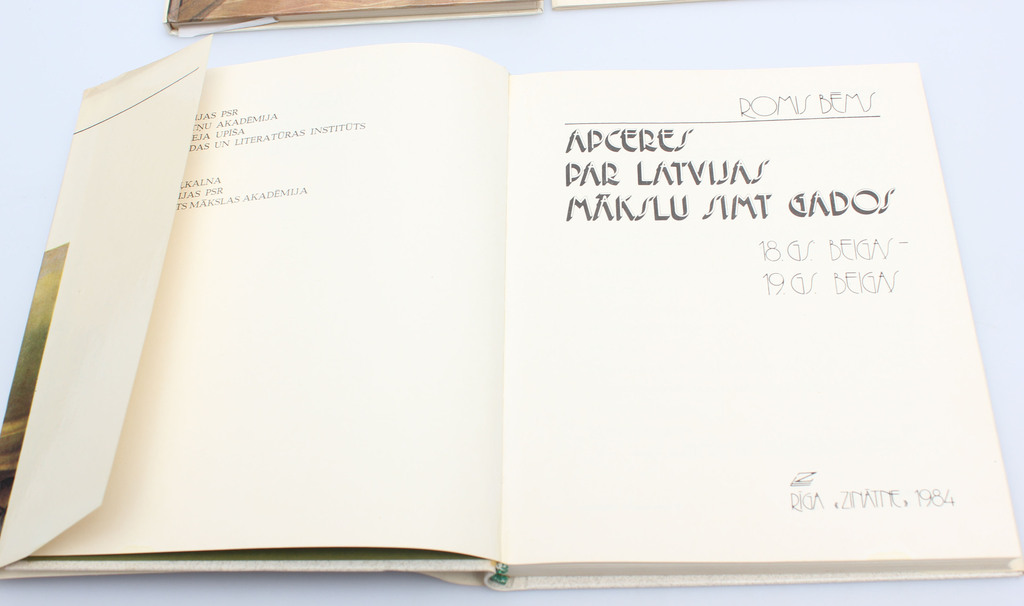 IJAS PSR
ŅU AKADĒMIJA
EJA UPĪŠA
DAS UN LITERATŪRAS INSTITŪTS
KALNA
IJAS PSR
TS MĀKSLAS AKADĒMIJA
ROMIS BĒMS
APCERES
PAR LATVIJAS
MĀKSLU SIMT GADOS
18. GS. BEIGAS –
19. GS. BEIGAS
RĪGA «ZINĀTNE» 1984